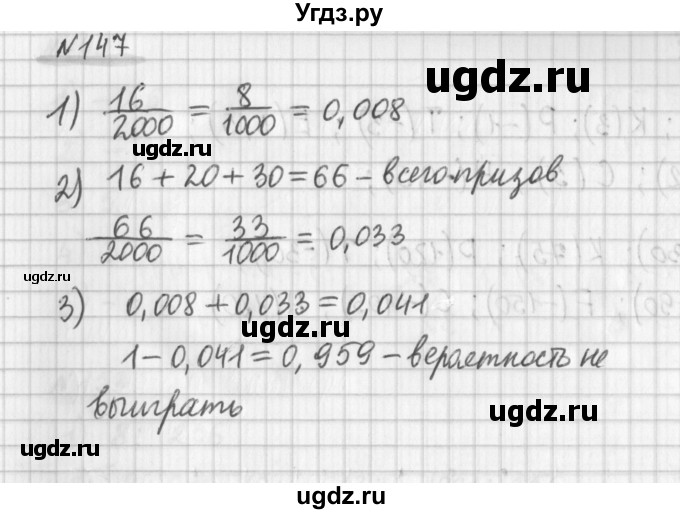 Угдз.ру
N147
1) 16/2000 = 8/1000 = 0,008
ugdz.ru
ugdz.ru
2) 16 + 20 + 30 = 66 - всего призов
66/2000 = 33/1000 = 0,033
ugdz.ru
ugdz.ru
3) 0,008 + 0,033 = 0,041
ugdz.ru
1 - 0,041 = 0,959 - вероетность не
выиграть
ugdz.ru
ugdz.ru
ugdz.ru